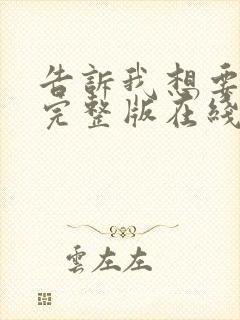 告訴我想要
完整版在綫
雲左左